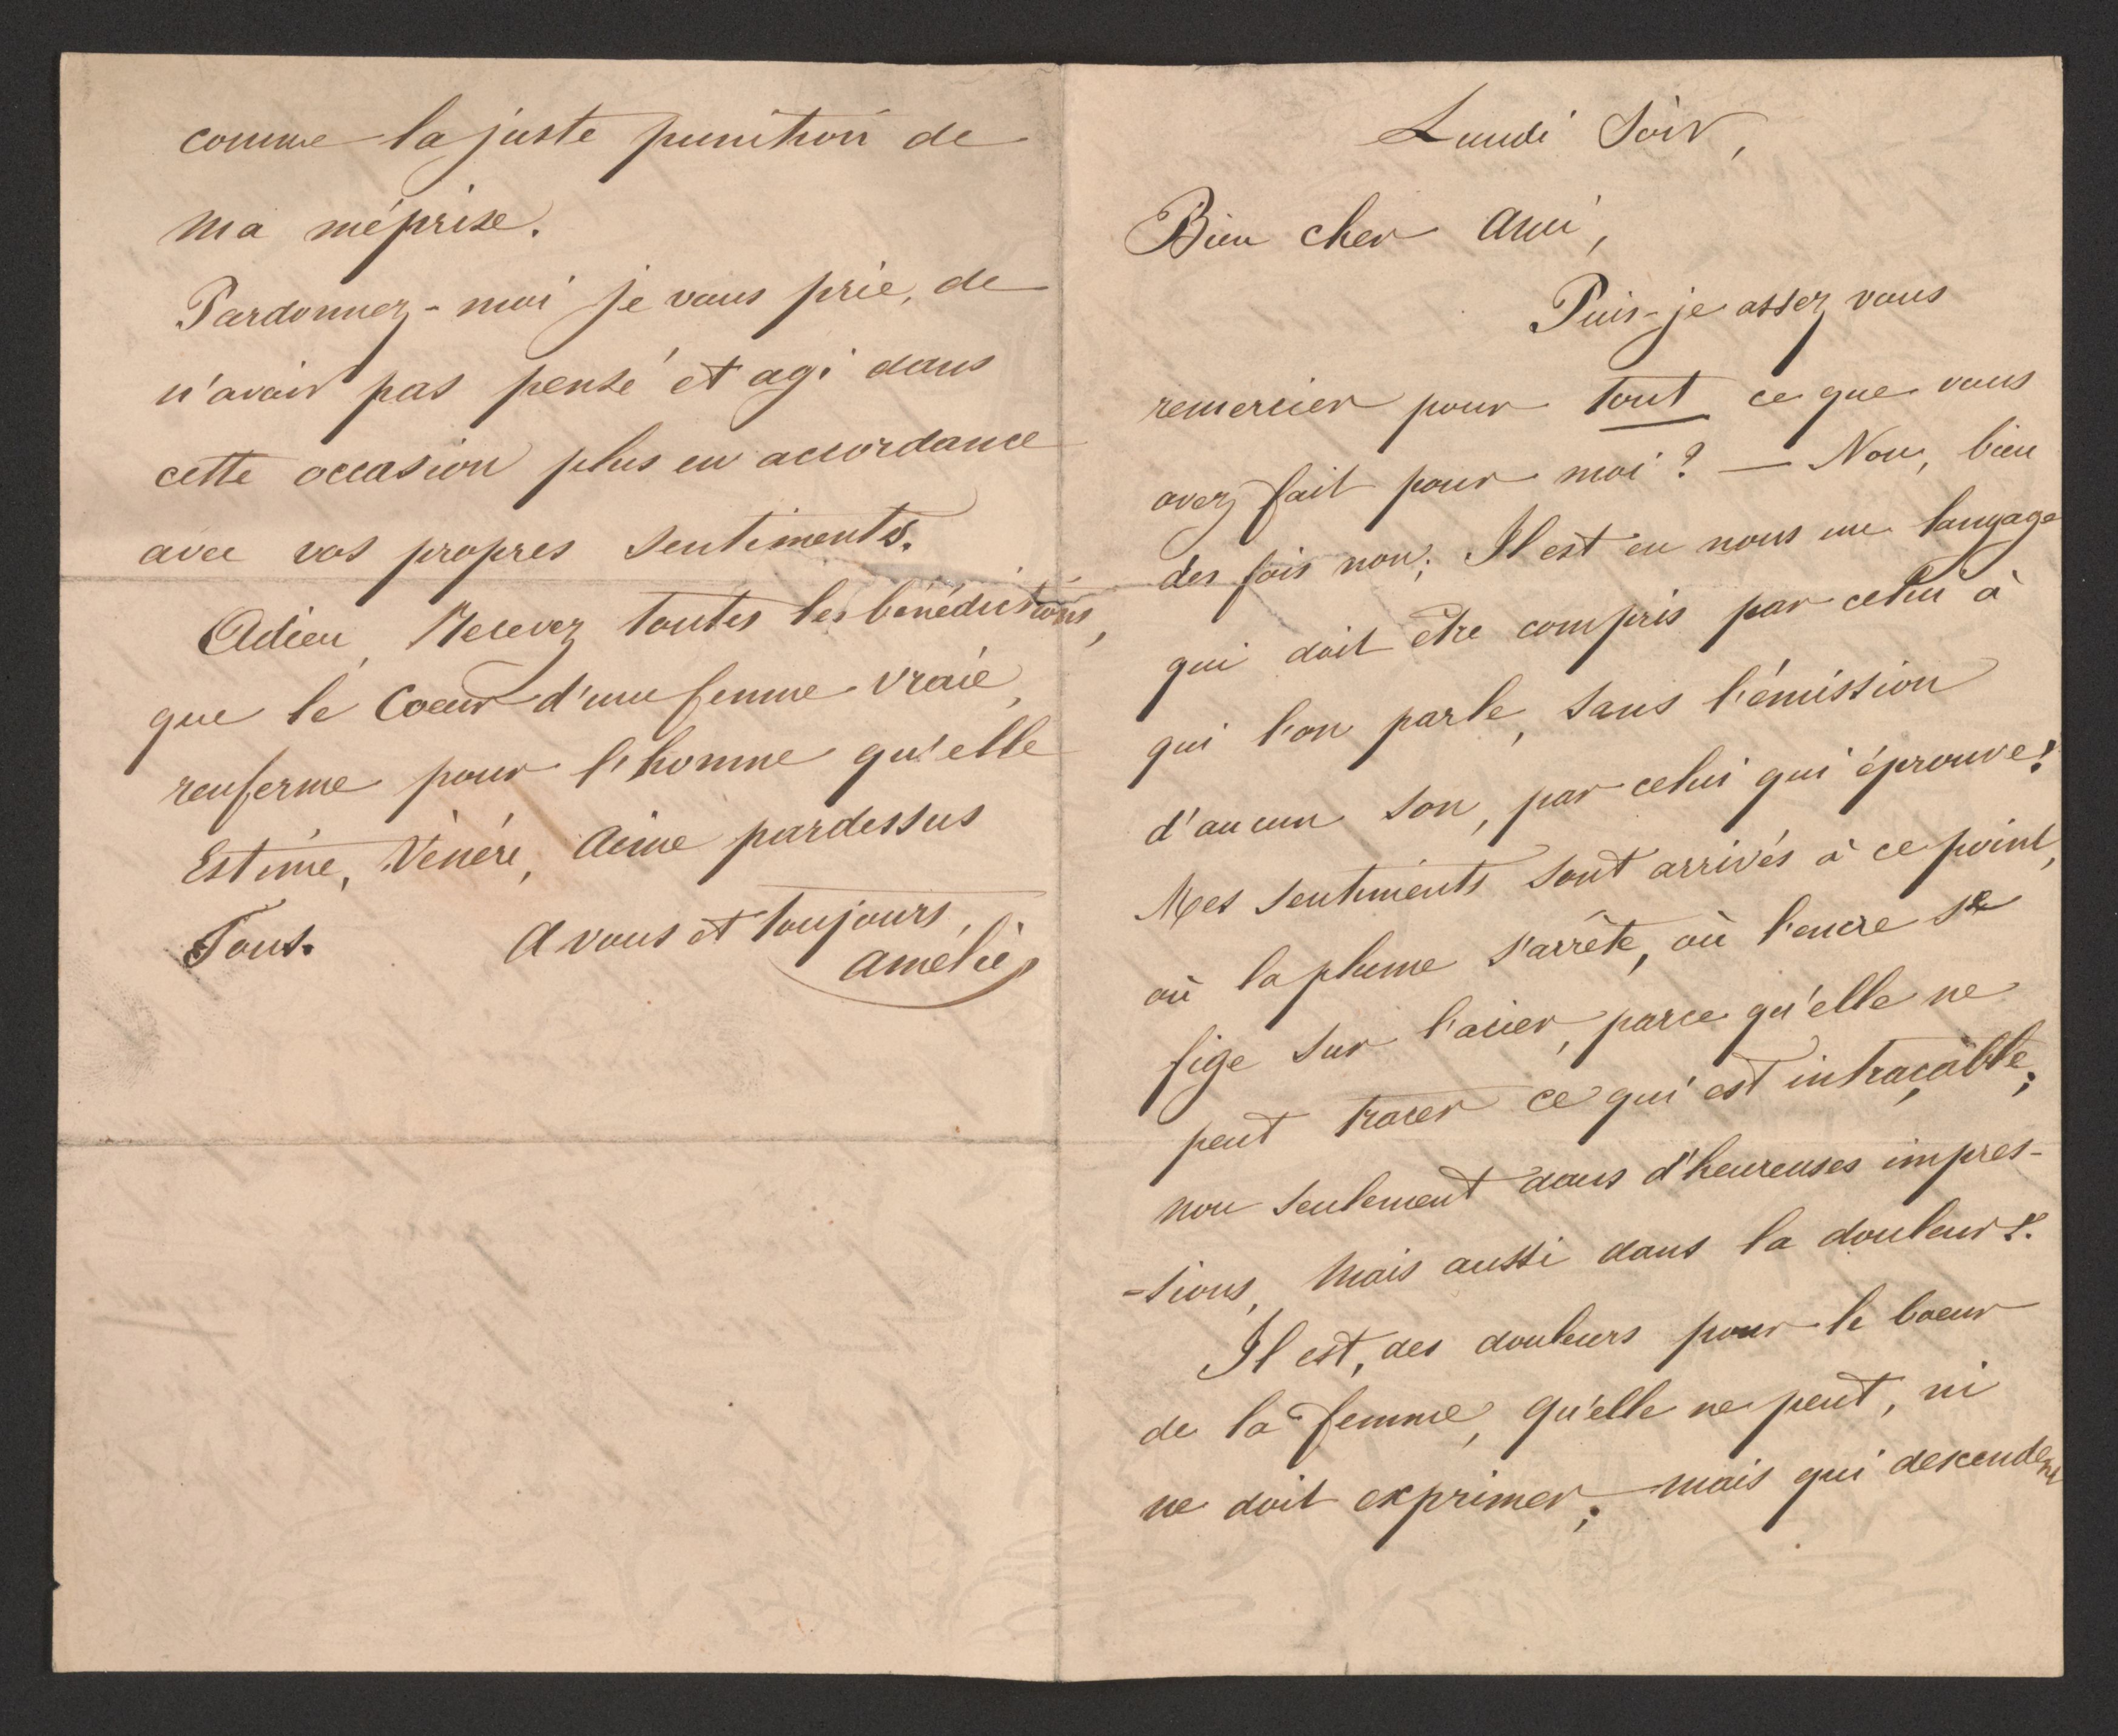 Lundi Soir,
Bien cher Ami,
Puis-je assez vous
remercier pour tout ce que vous
avez fait pour moi? — Non, bien
des fois non; Il est en nous un langage
qui doit être compris par celui à
qui l'on parle, sans l'émission
d'aucun son, par celui qui éprouve!
Mes sentiments sont arrivés à ce point,
où la plume s'arrête, où l'encre se
fige sur l'acier, parce qu'elle ne
peut tracer ce qui est intraçable;
non seulement dans d'heureuses impres-
-sions, mais aussi dans la douleur.
Il est, des douleurs pour le Coeur
de la femme, qu'elle ne peut, ni
ne doit exprimer; mais qui descendent
comme la juste punition de
ma méprise.
Pardonnez-moi je vous prie, de
n'avoir pas pensé et agi dans
cette occasion plus en accordance
avec vos propres sentiments.
Adieu, Recevez toutes les bénédictions,
que le Coeur d'une femme vraie,
renferme pour l'homme qu'elle
Estime, Vénère, Aime pardessus
Tous. A vous et toujours,
Amélie